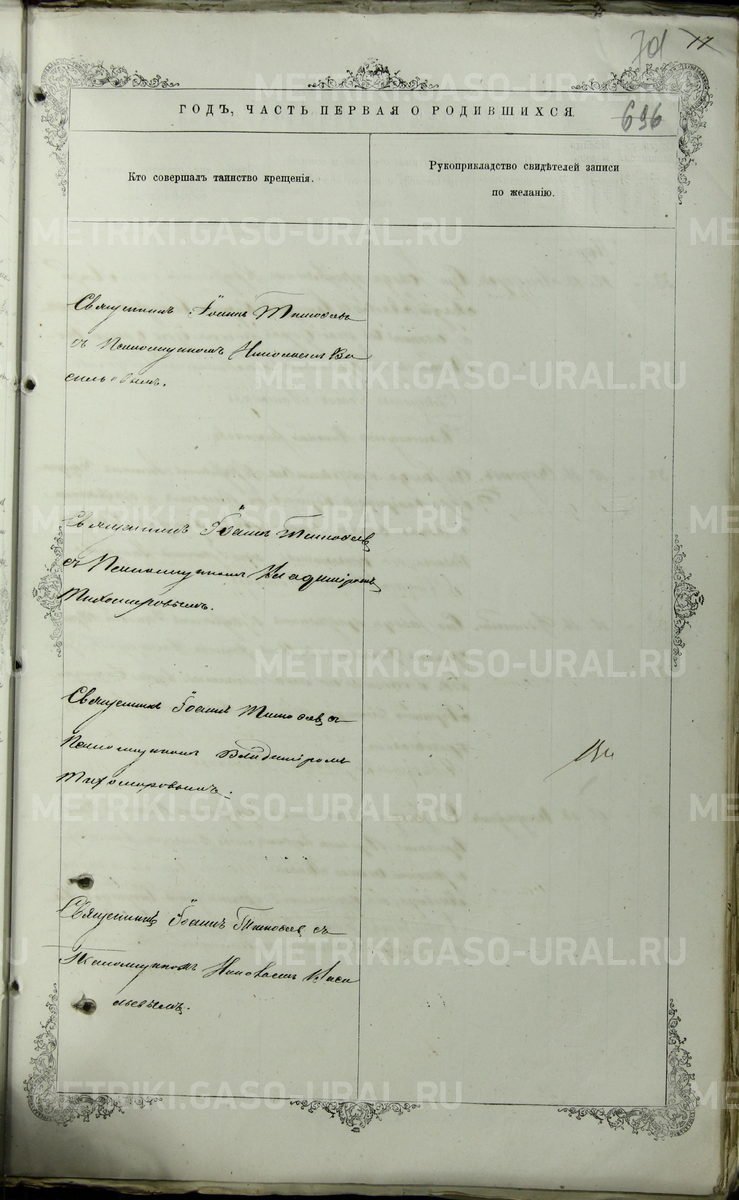 701 17
696
ГОДЪ, ЧАСТЬ ПЕРВАЯ О РОДИВШИХСЯ.
Кто совершалъ таинство крещенія.
Рукоприкладство свидѣтелей записи
по желанію.
Священникъ Іоаннъ Тимофеевъ
съ Псаломщикомъ Николаемъ Ва
сильевымъ.
Священникъ Іоаннъ Тимофеевъ
съ Псаломщикомъ Владиміромъ
Тихомировымъ.
Священникъ Іоаннъ Тимофеевъ съ
Псаломщикомъ Владиміромъ
Тихомировымъ.
Священникъ Іоаннъ Тимофеевъ съ
Псаломщикомъ Николаемъ Васи
льевымъ.
METRIKI.GASO-URAL.RU